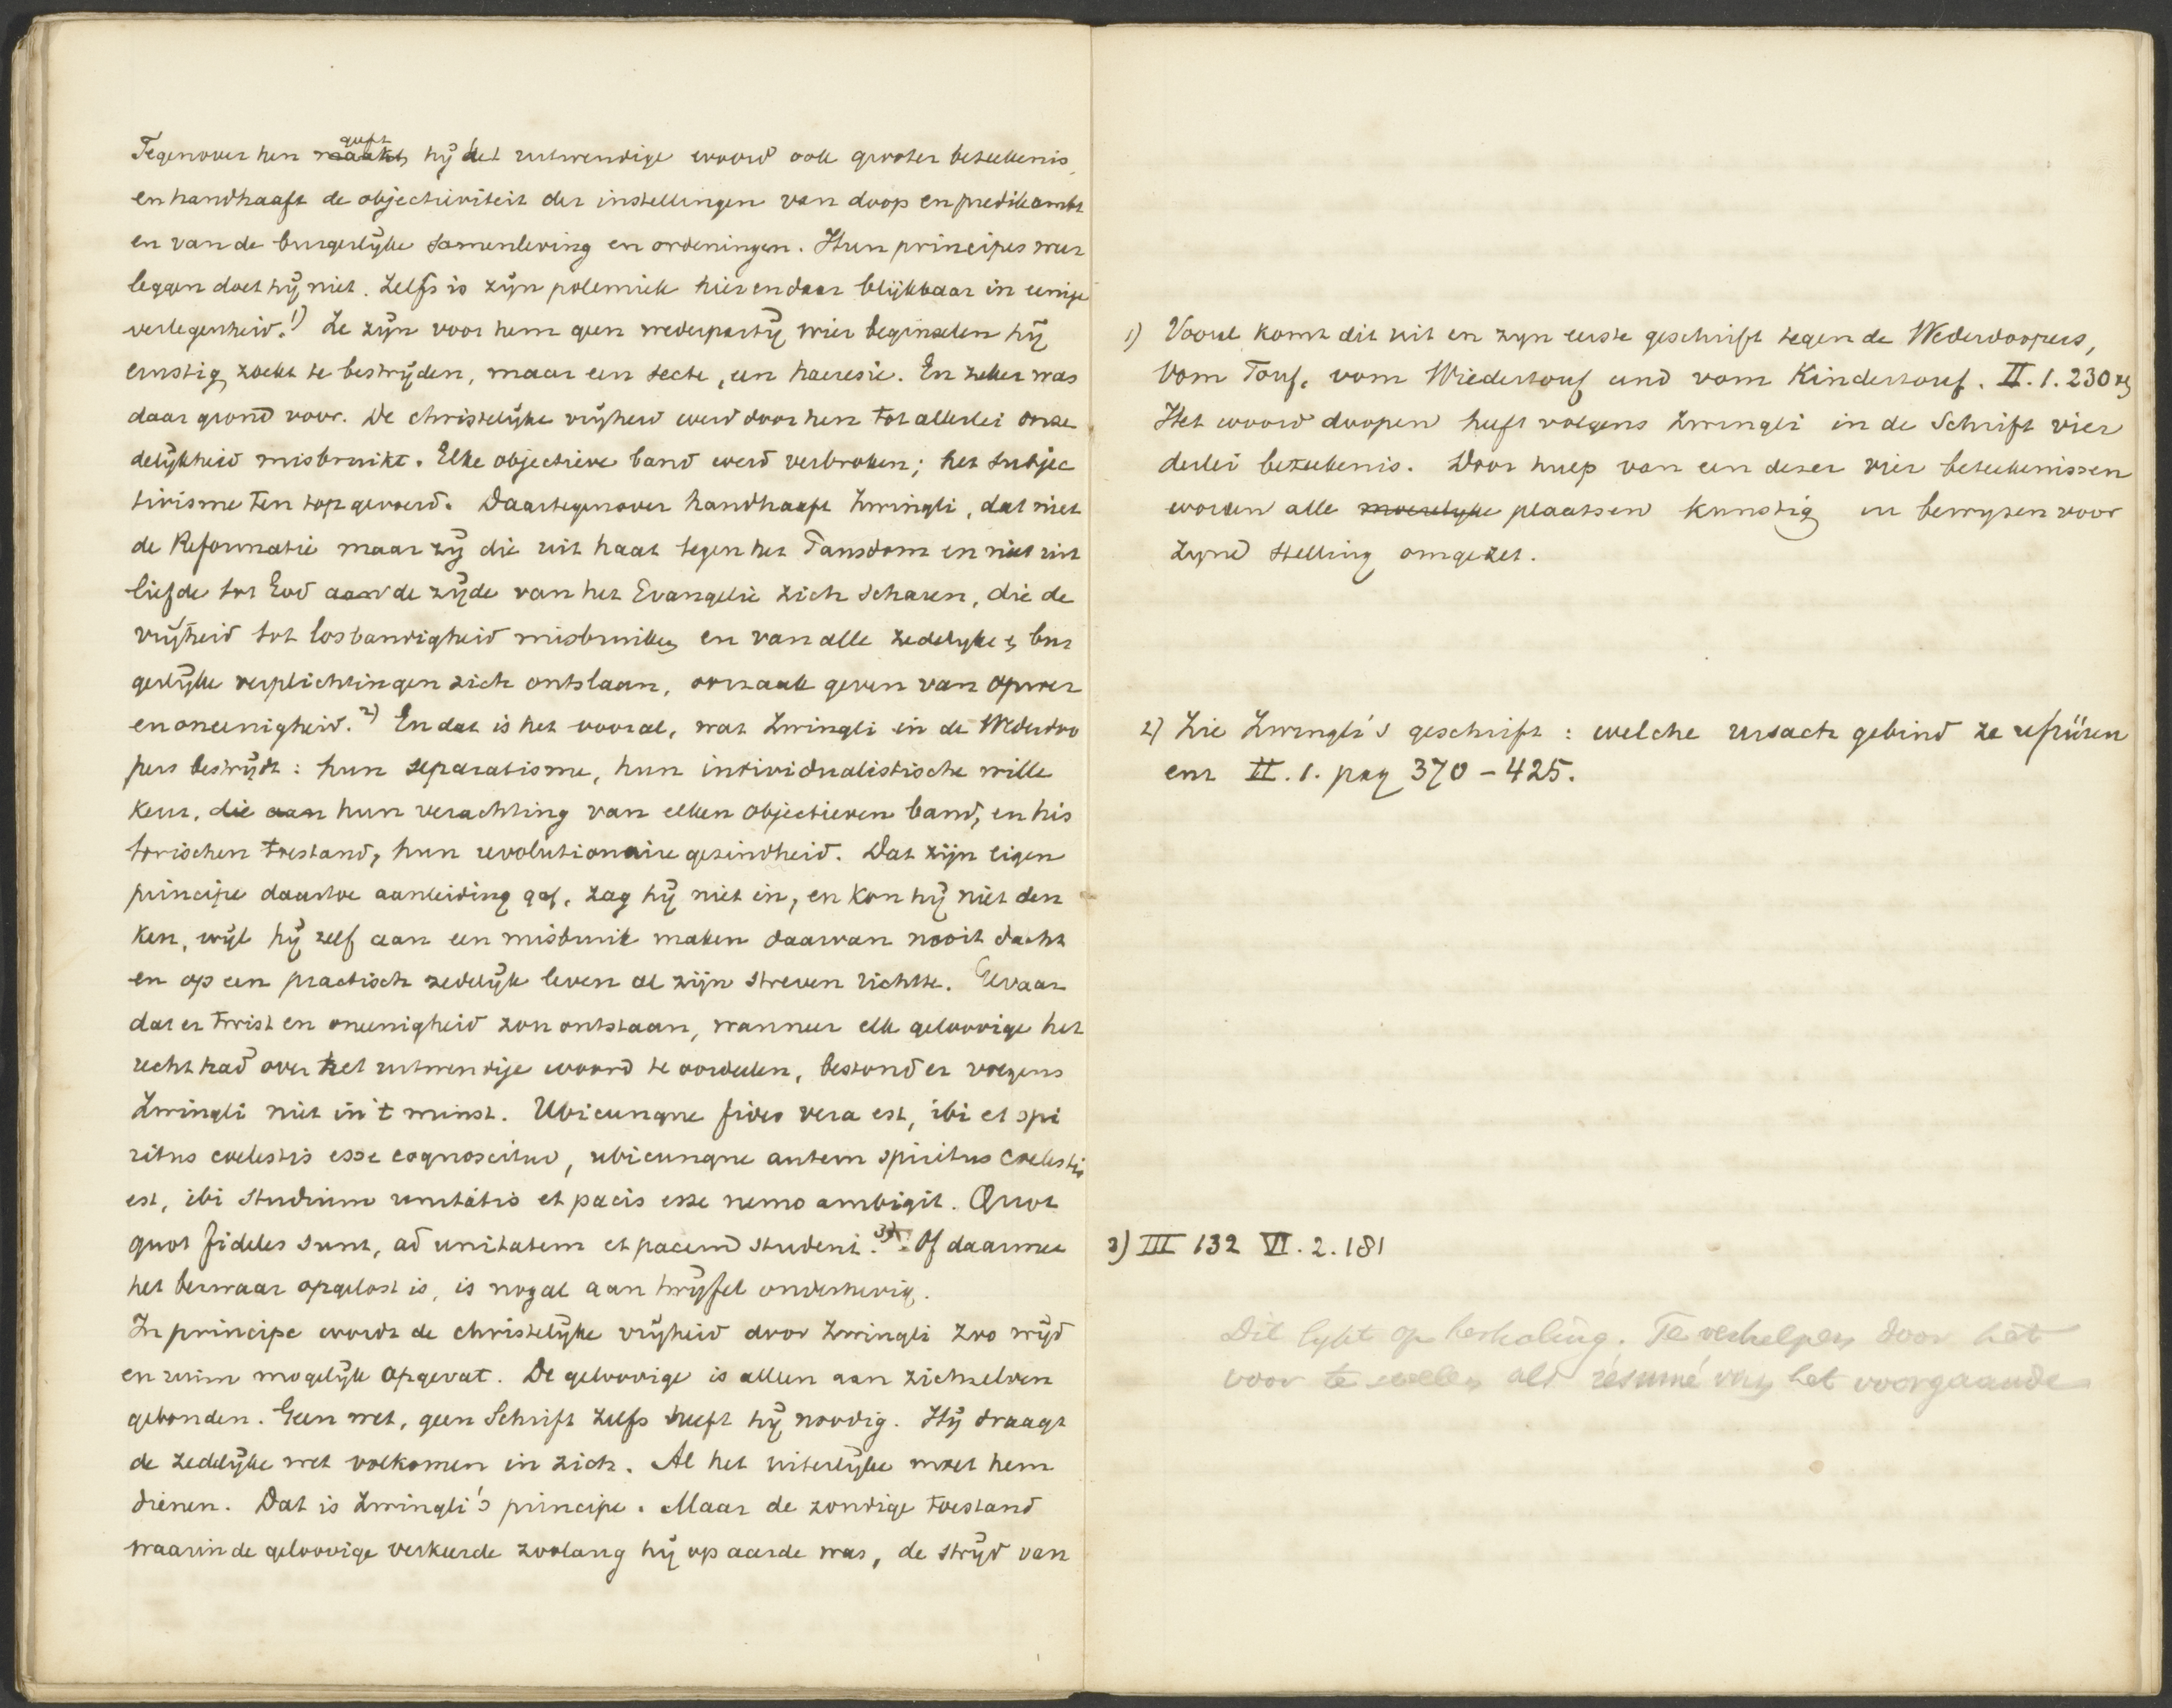 Tegenover hen maakt geeft hij het uitwendige woord ook grooter beteekenis,
en handhaaft de objectiviteit der instellingen van doop en predikambt
en van de burgerlijke samenleving en ordeningen. Hun principes weer
leggen doet hij niet. Zelfs is zijn polemiek hier en daar blijkbaar in eenige
verlegenheid.1) Ze zijn voor hem geen wederpartij wier beginselen hij
ernstig zoekt te bestrijden, maar een secte, een haeresie. En zeker was
daar grond voor. De christelijke vrijheid werd door hen tot allerlei onze
delijkheid misbruikt. Elke objectieve band werd verbroken; het subjec
tivisme ten top gevoerd. Daartegenover handhaaft Zwingli, dat niet
de Reformatie maar zij die uit haat tegen het Pausdom en niet uit
liefde tot God aan de zijde van het Evangelie zich scharen, die de
vrijheid tot losbandigheid misbruiken en van alle zedelyke & bur
gerlijke verplichtingen zich ontslaan, oorzaak geven van oproer
en oneenigheid.2) En dat is het vooral, wat Zwingli in de Wederdoo
pers bestrijdt: hun separatisme, hun individualistische wille
keur, die aan hun verachting van elken objectieven band, en his
torischen toestand, hun revolutionaire gezindheid. Dat zijn eigen
principe daartoe aanleiding gaf, zag hij niet in, en kon hij niet den
ken, wijl hij zelf aan een misbruik maken daarvan nooit dacht
en op een practisch zedelijk leven al zijn streven richtte. Gevaar
dat er twist en oneenigheid zou ontstaan, wanneer elk geloovige het
recht had over het uitwendige woord te oordeelen, bestond er volgens
Zwingli niet in 't minst. Ubicunque fides vera est, ibi et spi
ritus coelestis esse cognoscitur, ubicunque autem spiritus coelestis
est, ibi studium unitatis et pacis esse nemo ambigit. Quot
quot fideles sunt, ad unitatem et pacem student.3) Of daarmee
het bezwaar opgelost is, is nogal aan twijfel onderhevig.
In principe wordt de christelijke vrijheid door Zwingli zoo wijd
en ruim mogelijk opgevat. De geloovige is alleen aan zichzelven
gebonden. Geen wet, geen Schrift zelfs heeft hij noodig. Hij draagt
de zedelijke wet volkomen in zich. Al het uiterlijke moet hem
dienen. Dat is Zwingli's principe. Maar de zondige toestand
waarin de geloovige verkeerde zoolang hij op aarde was, de strijd van
1) Vooral komt dit uit en zyn eerste geschrift tegen de Wederdoopers,
Vom Touf, vom Wiedertouf und vom Kindertouf. II. 1. 230 vg
Het woord doopen heeft volgens Zwingli in de Schrift vier
derlei beteekenis. Door hulp van een dezer vier beteekenissen
worden alle moeielyke plaatsen kunstig in bewyzen voor
zyne stelling omgezet.
2) Zie Zwingli's geschrift: welche ursach gebind ze ufrüren
enz II. 1. pag 370-425.
3) III 132 VI. 2. 181
Dit lykt op herhaling. Te verhelpen door het
voor te stellen als résumé van het voorgaande